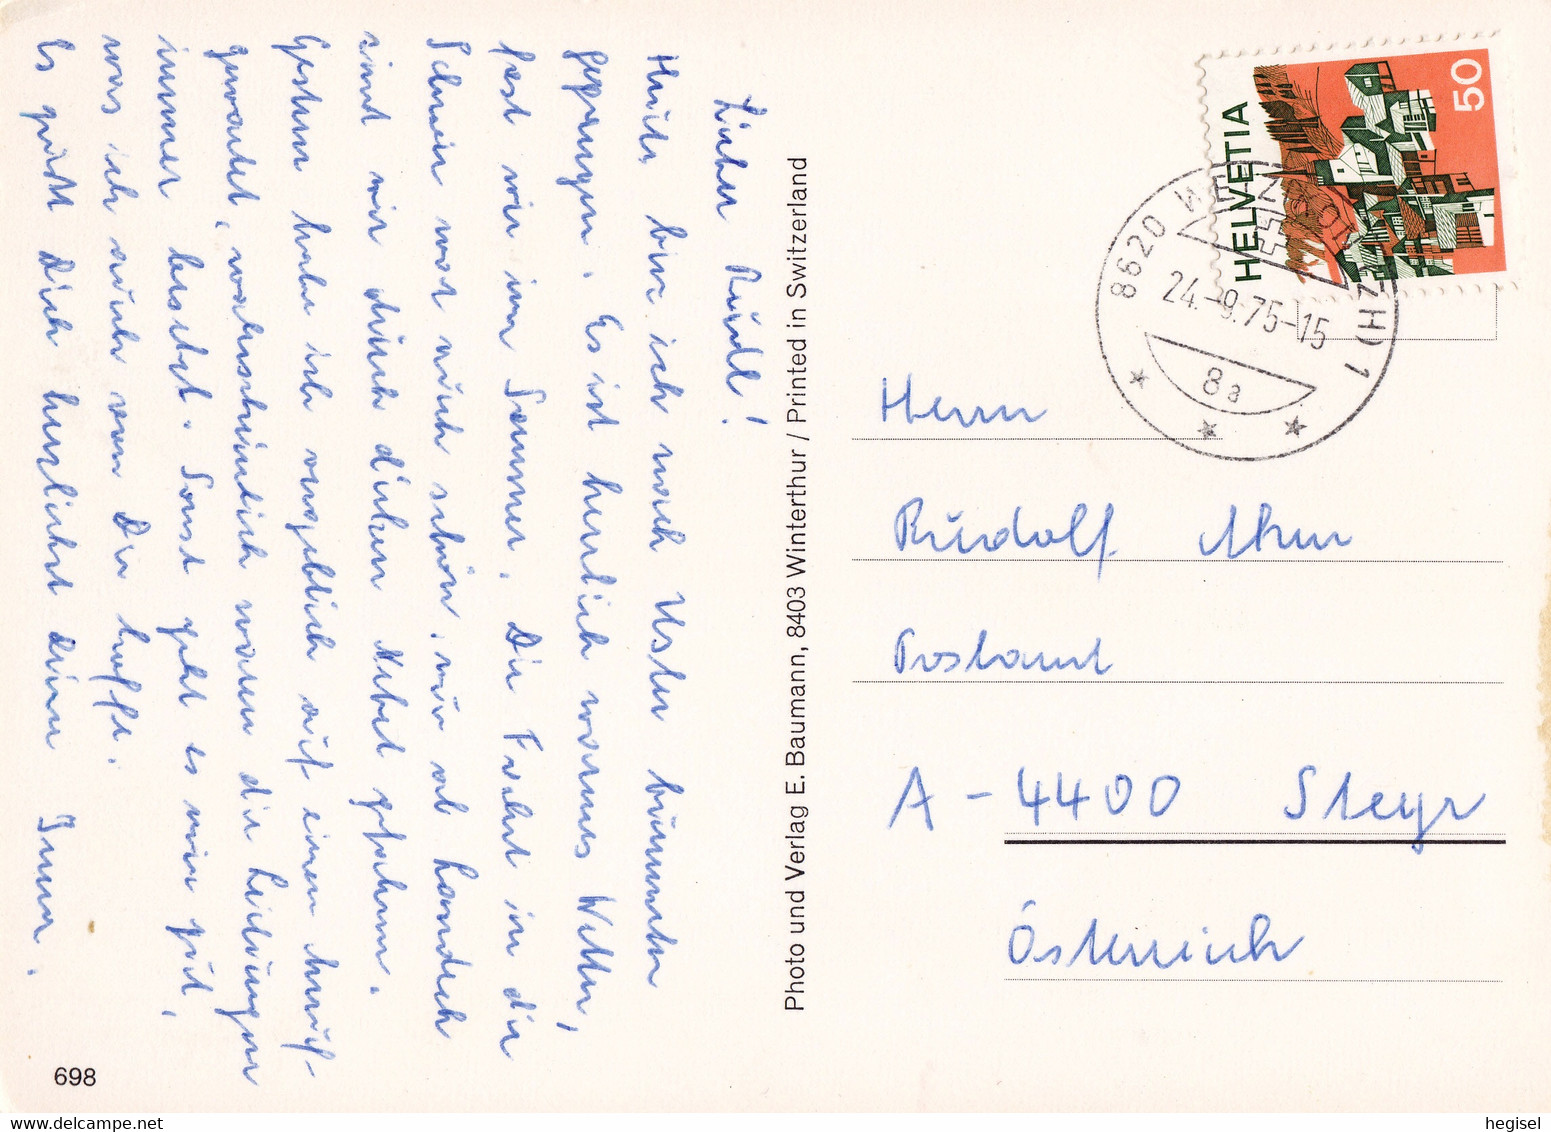 Lieber Rudl!
Heute bin ich nach Uster bummeln
gegangen. Es ist herrlich warmes Wetter,
fast wie im Sommer. Die Fahrt in die
Schweiz war auch schön, nur ab Landeck
sind wir durch dicken Nebel gefahren.
Gestern habe ich vergeblich auf einen Anruf
gewartet, wahrscheinlich waren die Leitungen
immer besetzt. Sonst geht es mir gut,
was ich auch von Dir hoffe.
Es grüßt Dich herzlichst Deine
Photo und Verlag E. Baumann, 8403 Winterthur / Printed in Switzerland
698
HELVETIA
50
8620 WETZIKON (ZH) 1
24.-9.75-15
8a
Herrn
Rudolf
Postamt
A - 4400 Steyr
Österreich
hegisel